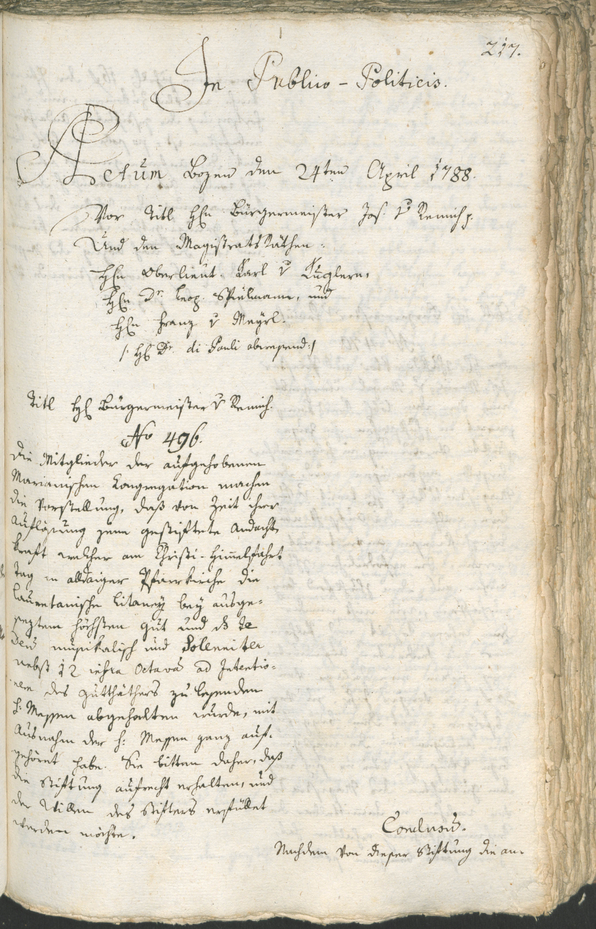 217.
In Publico-Politicis.
Actum Bozen den 24ten April 1788.
Vor Titl Hh Bürgermeister Jos. v Remich p.
Und den Magistrats Räthen:
Hh Oberlieut. Karl v Zuglern,
Hh Dr. Leop Spielmann, und
Hh Franz v Mayrl.
/: Hh Dr. di Pauli :/
Titl Hh Bürgermeister v Remich.
No 496.
Die Mitglieder der aufgehobenen
Marianischen Congregation machen
die Vorstellung, daß von Zeit ihrer
Auflösung jene gestiftete Andacht,
Kraft welcher am Christi-Himmelfahrt
Tag in alldaiger Pfarrkirche die
Lauretanische Litaney bey ausge-
seztem höchsten Gut und ds Te
Deu musikalisch und Soleniter
nebst 12 Octava ad Intentio-
nem des Gutthäters zu lesenden
h: Messen abgehalten wurde, mit
Ausnahm der h: Messen ganz auf-
gehöret habe. Sie bitten daher, daß
die Stiftung aufrecht erhalten, und
der Willen des Stifters erfüllet
werden möchte.
Conclusum.
Nachdem von dieser Stiftung die an-